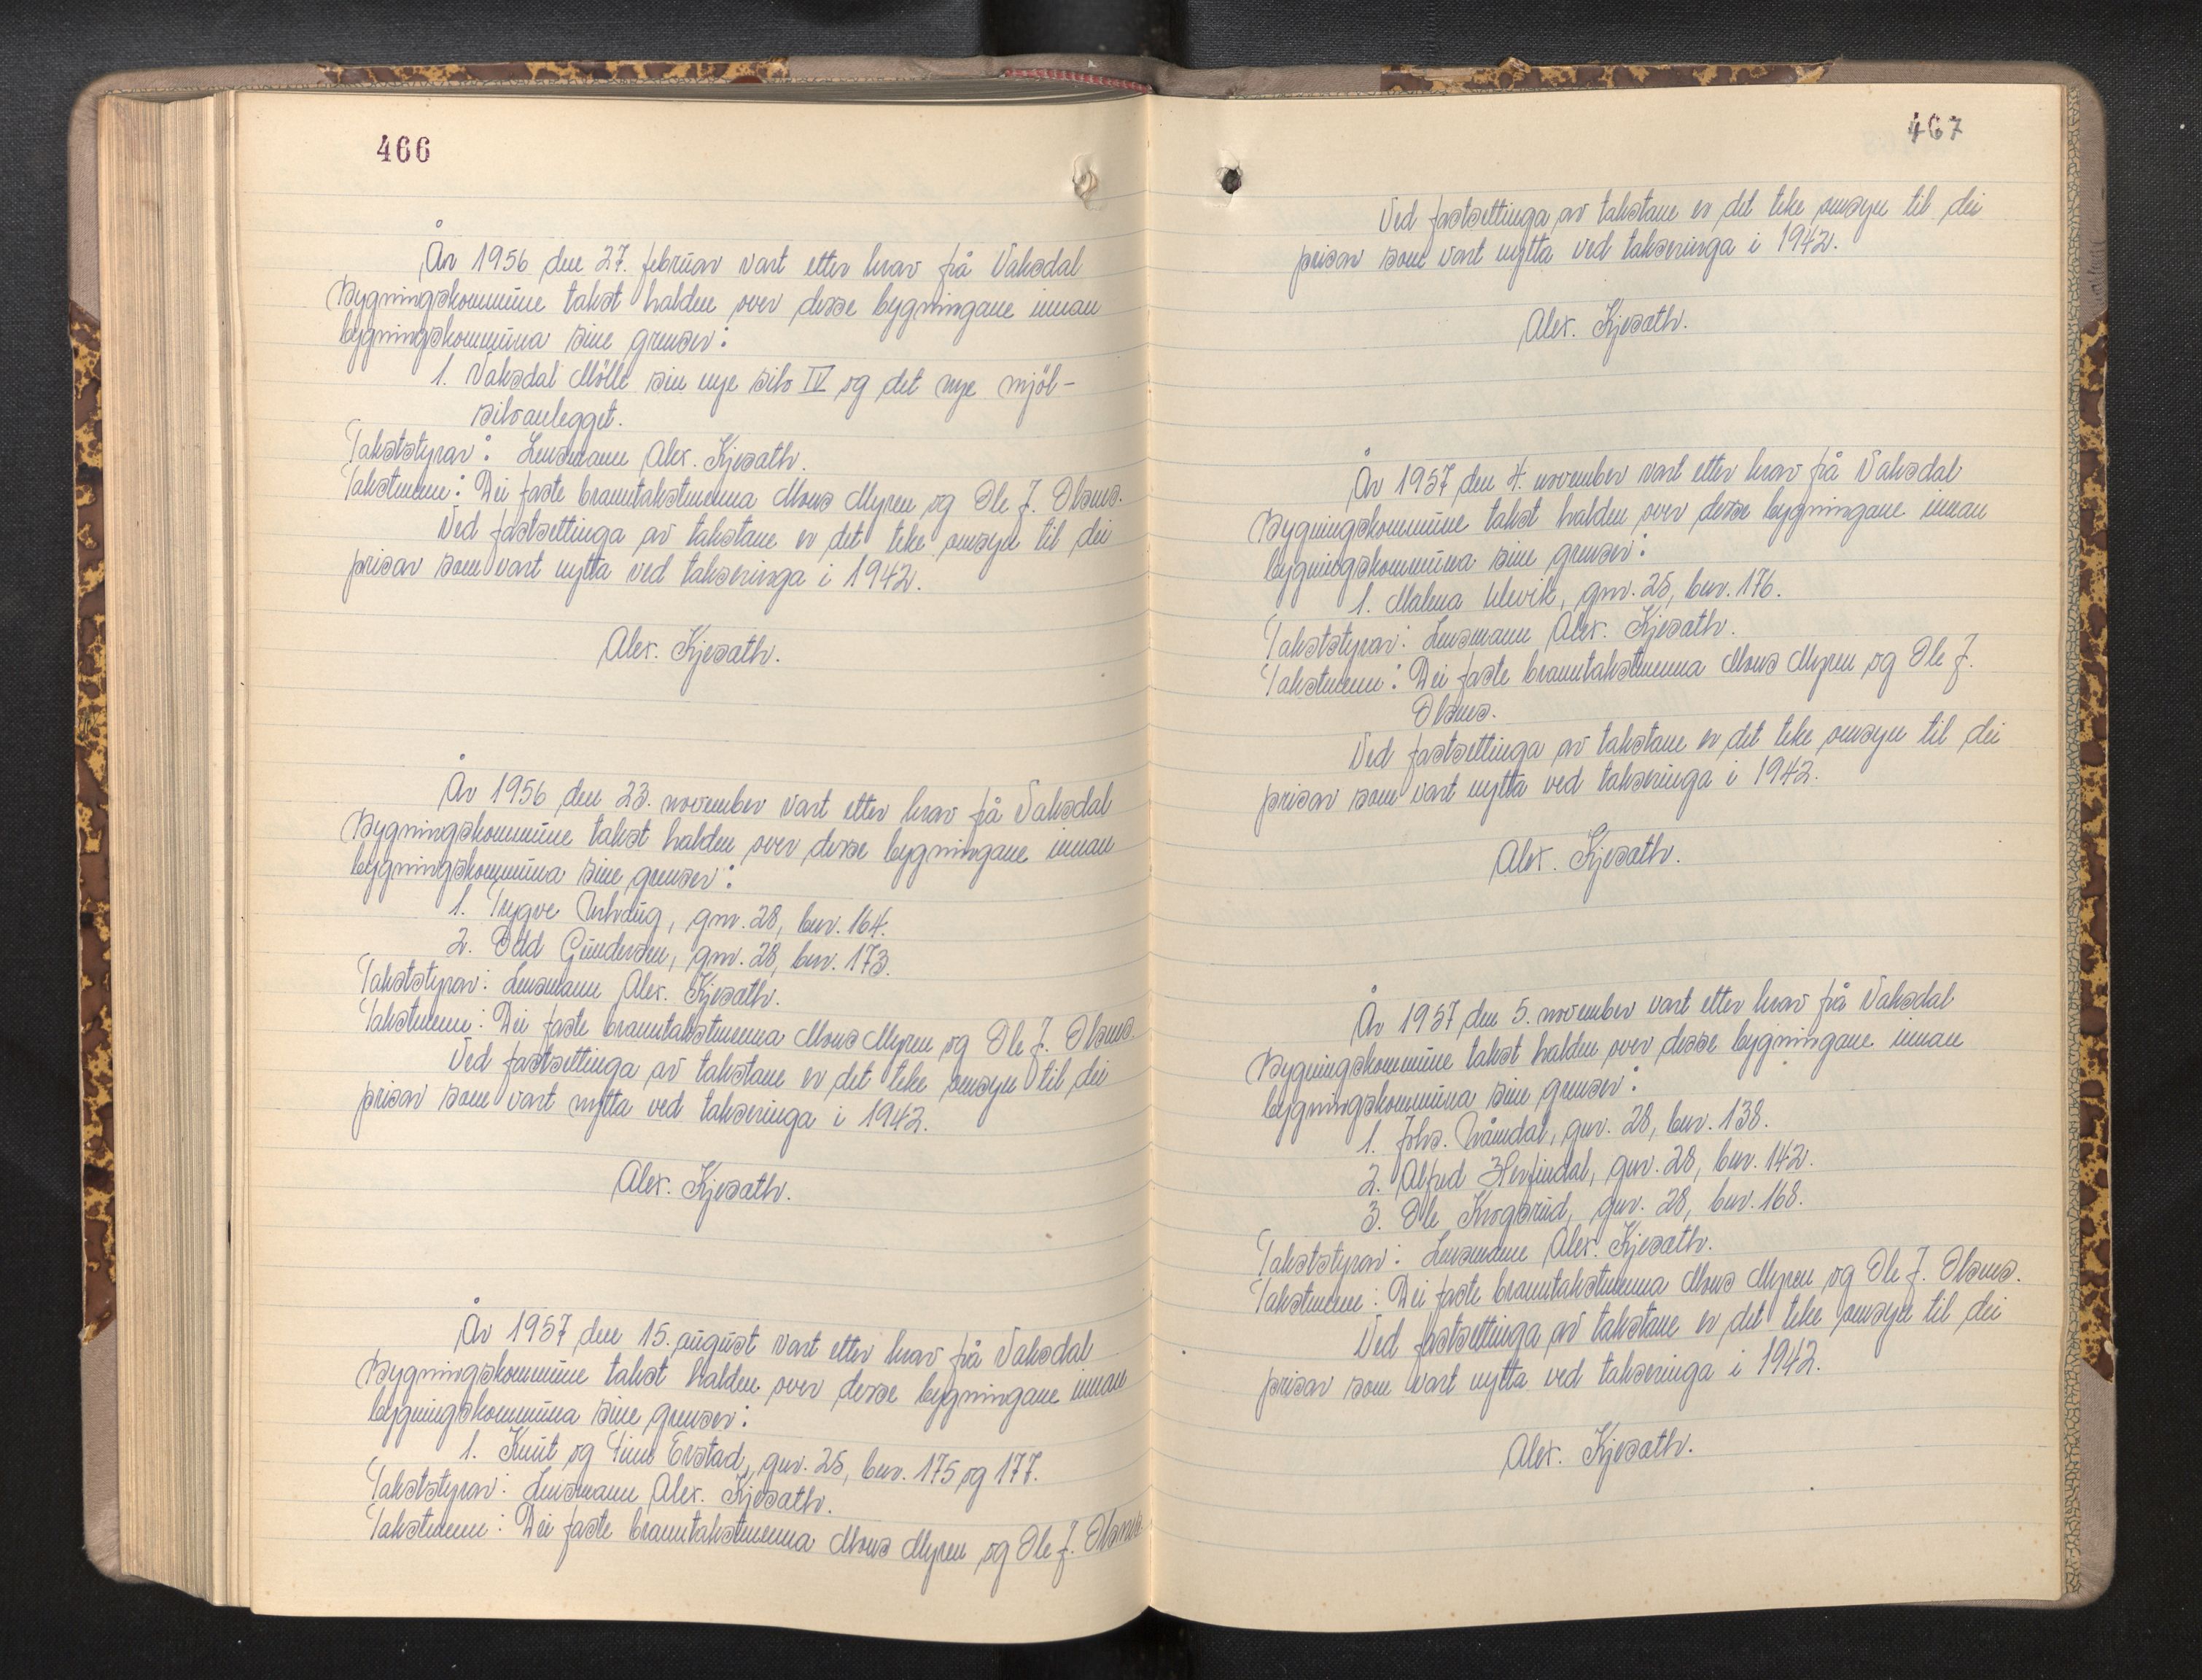 466
År 1956 den 27. februar vart etter krav frå Vaksdal
Bygningskommune takst halden over desse bygningane innan
bygningskommuna sine grenser:
1. Vaksdal Mölle sin nye silo IV og det nye mjöl-
siloanlegget.
Takststyrar: Lensmann Alex. Kjesath.
Takstmenn: Dei faste branntakstmenna Mons Myren og Ole J. Olsnes.
Ved fastsettinga av takstane er det teke omsyn til dei
prisar som vart nytta ved takseringa i 1942.
Alex. Kjesath.
År 1956 den 23. november vart etter krav frå Vaksdal
Bygningskommune takst halden over desse bygningane innan
bygningskommuna sine grenser:
1. Trygve gnr. 28, bnr. 164.
2. Odd Gundersen, gnr. 28, bnr. 173.
Takststyrar: Lensmann Alex. Kjesath.
Takstmenn: Dei faste branntakstmenna Mons Myren og Ole J. Olsnes.
Ved fastsettinga av takstane er det teke omsyn til dei
prisar som vart nytta ved takseringa i 1942.
Alex. Kjesath.
År 1957 den 15. august vart etter krav frå Vaksdal
Bygningskommune takst halden over desse bygningane innan
bygningskommuna sine grenser:
1. Knut og Erstad, gnr. 25, bnr. 175 og 177.
Takststyrar: Lensmann Alex. Kjesath.
Takstmenn: Dei faste branntakstmenna Mons Myren og Ole J. Olsnes.
467
Ved fastsettinga av takstane er det teke omsyn til dei
prisar som vart nytta ved takseringa i 1942.
Alex. Kjesath.
År 1957 den 4. november vart etter krav frå Vaksdal
Bygningskommune takst halden over desse bygningane innan
bygningskommuna sine grenser:
1. Malena Ulevik, gnr. 25, bnr. 176.
Takststyrar: Lensmann Alex. Kjesath.
Takstmenn: Dei faste branntakstmenna Mons Myren og Ole J.
Olsnes.
Ved fastsettinga av takstane er det teke omsyn til dei
prisar som vart nytta ved takseringa i 1942.
Alex. Kjesath.
År 1957 den 5. november vart etter krav frå Vaksdal
Bygningskommune takst halden over desse bygningane innan
bygningskommuna sine grenser:
1. Johs. Råmdal, gnr. 28, bnr. 138.
2. Alfred Herfindal, gnr. 28, bnr. 142.
3. Ole Krogsrud, gnr. 28, bnr. 168.
Takststyrar: Lensmann Alex. Kjesath.
Takstmenn: Dei faste branntakstmenna Mons Myren og Ole J. Olsnes.
Ved fastsettinga av takstane er det teke omsyn til dei
prisar som vart nytta ved takseringa i 1942.
Alex. Kjesath.